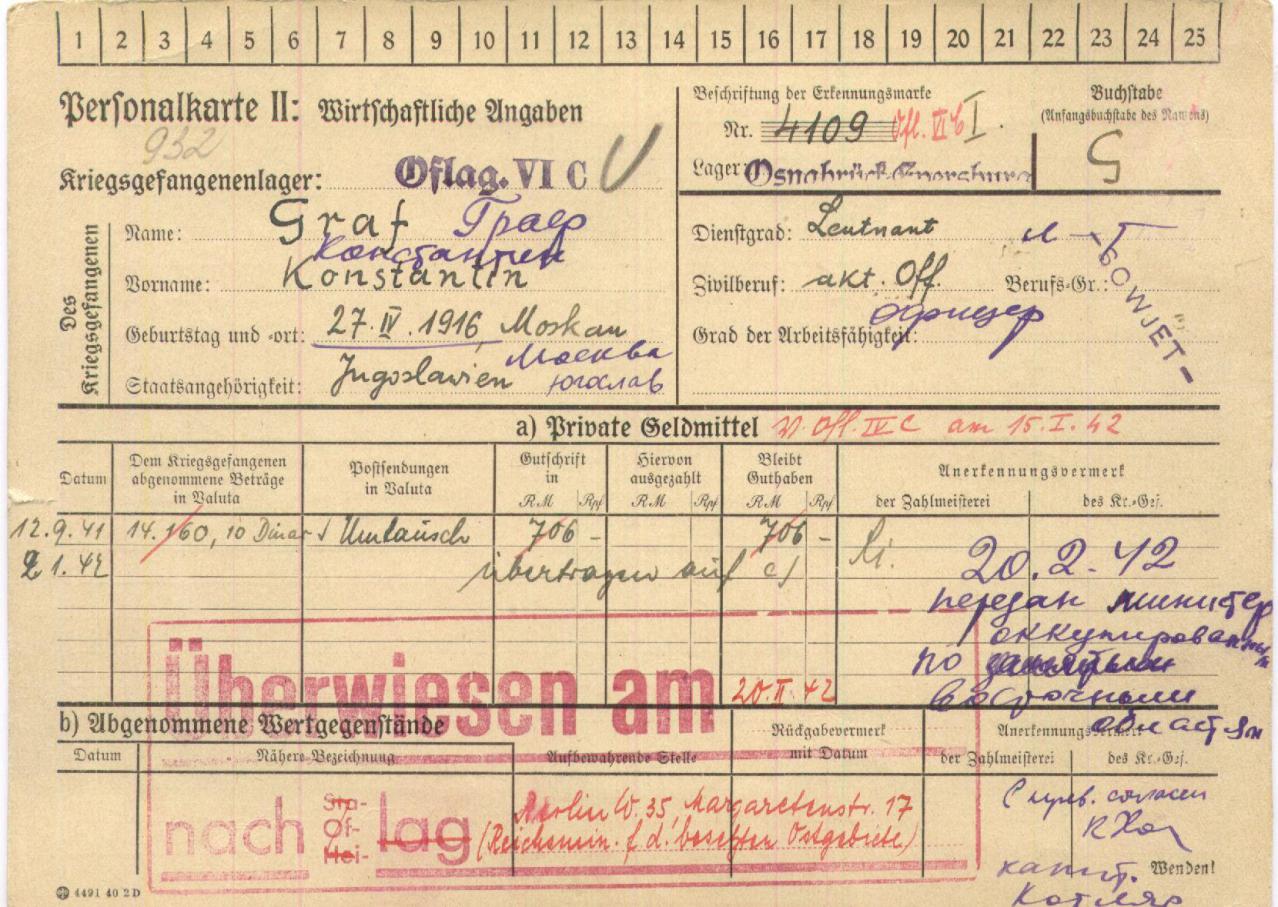 1 2 3 4 5 6 7 8 9 10 11 12 13 14 15 16 17 18 19 20 21 22 23 24 25
Personalkarte II: Wirtschaftliche Angaben
932
Kriegsgefangenenlager: Oflag. VI C
Beschriftung der Erkennungsmarke
Nr. 4109 Ofl. VI C I.
Lager: Osnabrück
Buchstabe
(Anfangsbuchstabe des Namens)
G
Des Kriegsgefangenen
Name: Graf Граф
Константин
Vorname: Konstantin
Geburtstag und -ort: 27. IV. 1916, Moskau
Москва
Staatsangehörigkeit: Jugoslawien югослав
Dienstgrad: Leutnant л-т
SOWJET-
Zivilberuf: akt. Off. Berufs-Gr.:
офицер
Grad der Arbeitsfähigkeit:
a) Private Geldmittel V. Ofl. IV C am 15. I. 42
Datum
Dem Kriegsgefangenen abgenommene Beträge in Valuta
Postsendungen in Valuta
Gutschrift in
RM Rpf
Hiervon ausgezahlt
RM Rpf
Bleibt Guthaben
RM Rpf
Anerkennungsvermerk
der Zahlmeisterei des Kr.-Gef.
12.9.41 14.160,10 Dinar Umtausch 706 - 706 -
2 1.42 übertragen auf c)
20.2.42
передан министер
оккупирован
по
восточным
област ям
Überwiesen am 20.II.42
b) Abgenommene Wertgegenstände
Datum
Nähere Bezeichnung
Aufbewahrende Stelle
Rückgabevermerk mit Datum
Anerkennungsvermerk
der Zahlmeisterei des Kr.-Gef.
nach Sta- Of- Hei- lag
Berlin W. 35, Margaretenstr. 17
(Reichsmin. f. d. besetzten Ostgebiete)
капит.
Котляр
Wenden!
4491 40 2 D